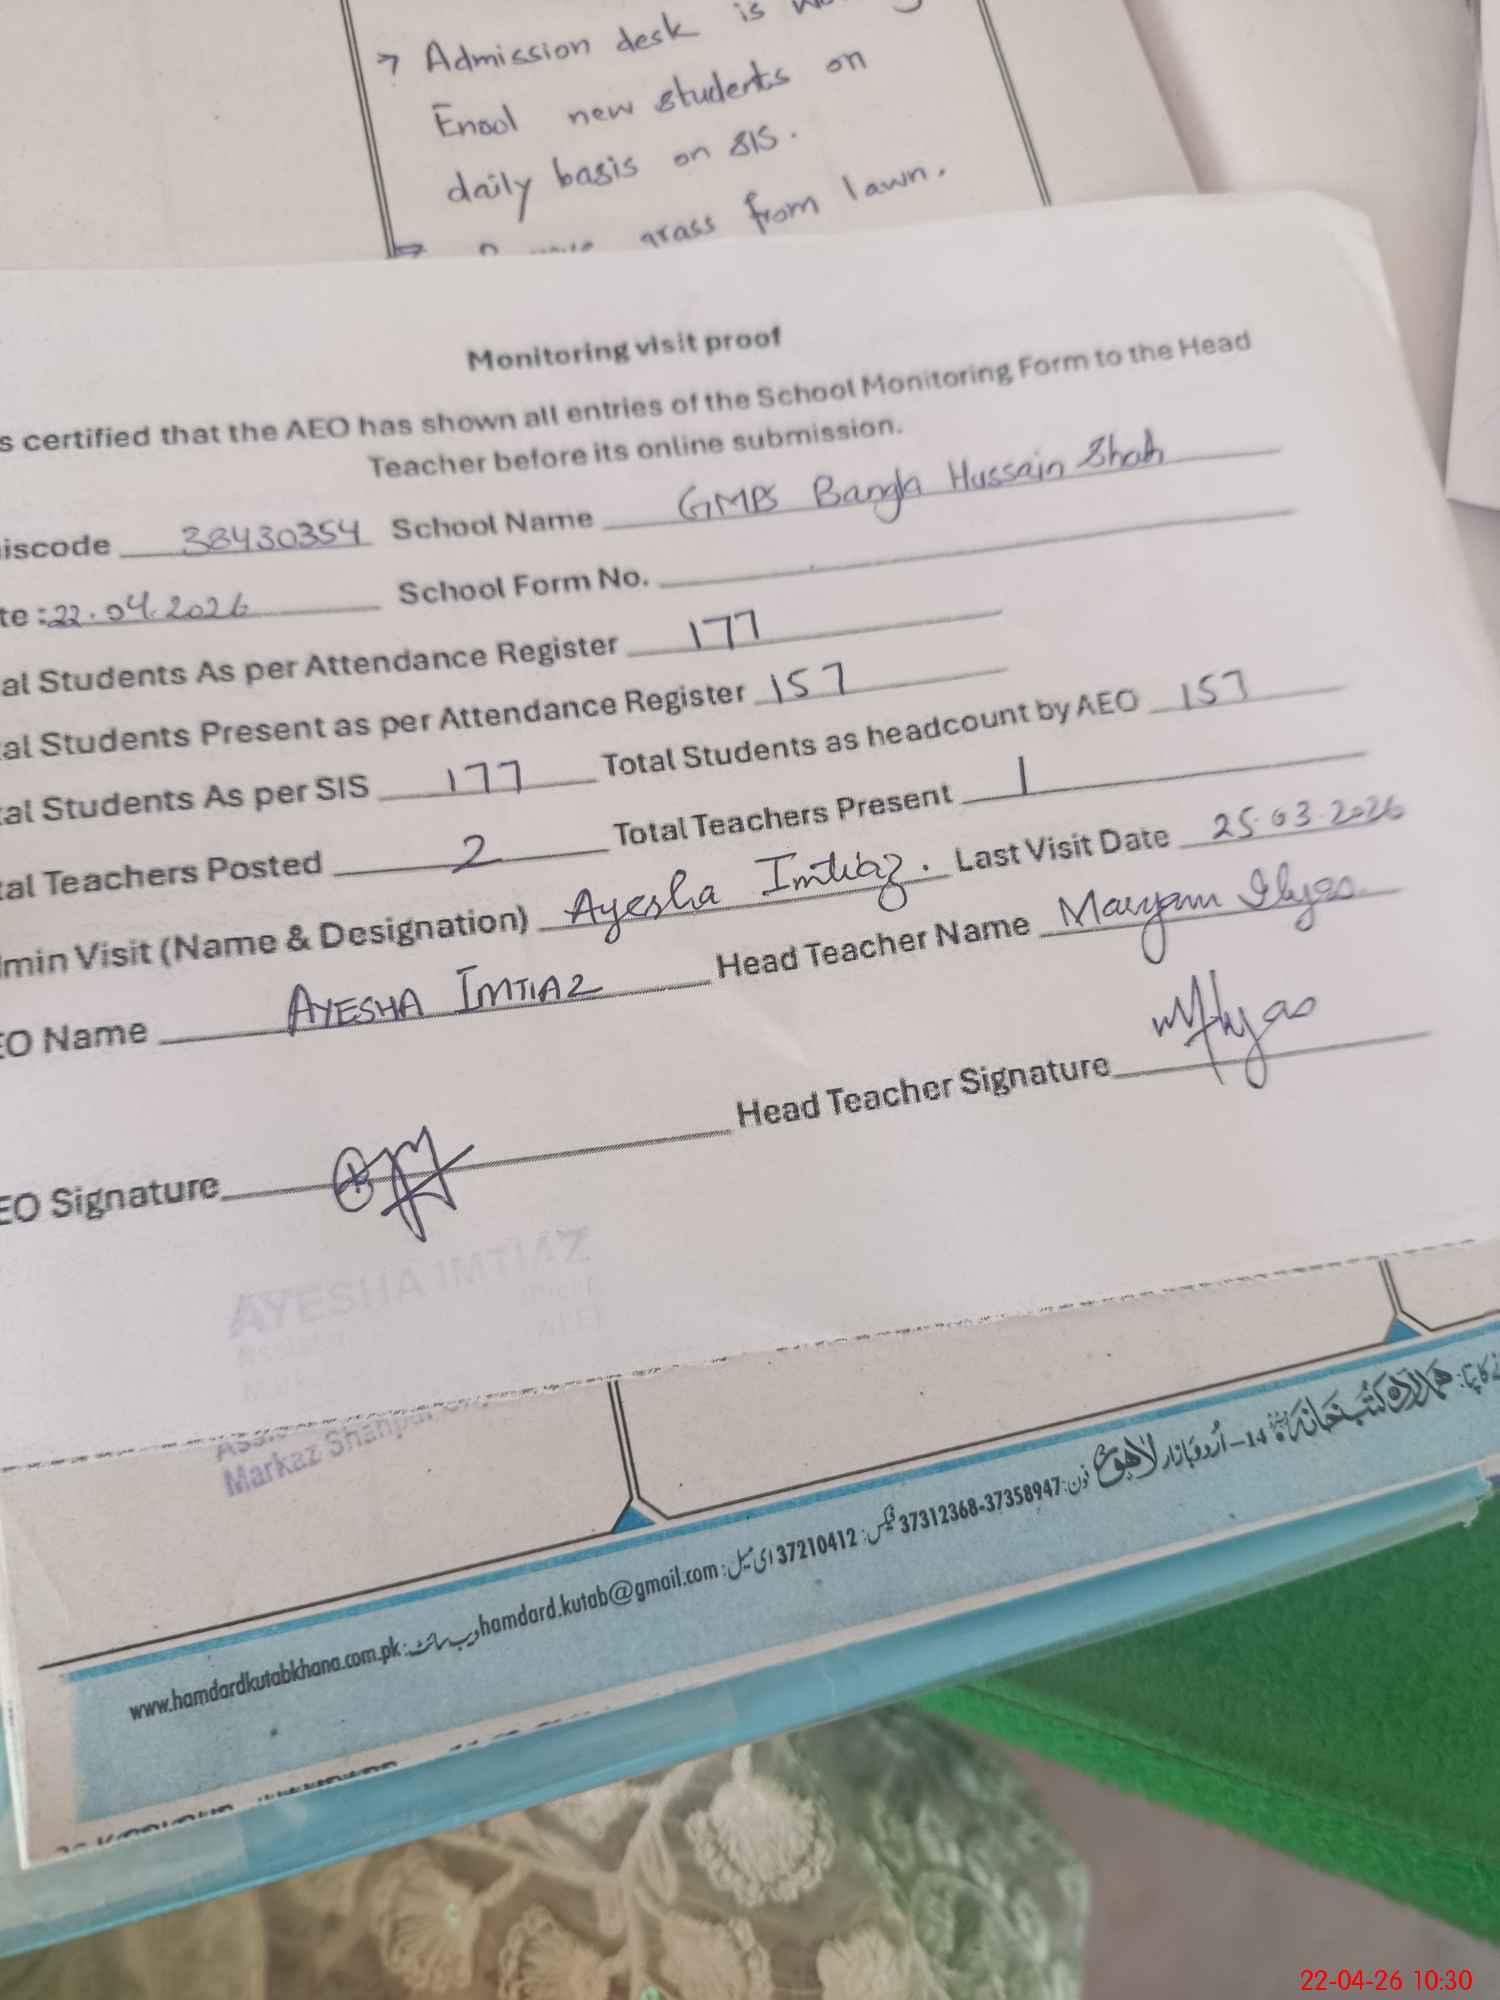 → Admission desk is
Enool new students on
daily basis on SIS.
grass from lawn.
Monitoring visit proof
s certified that the AEO has shown all entries of the School Monitoring Form to the Head
Teacher before its online submission.
iscode 38430354 School Name GMPS Bangla Hussain Shah
te :22.04.2026 School Form No.
al Students As per Attendance Register 177
al Students Present as per Attendance Register 157
tal Students As per SIS 177 Total Students as headcount by AEO 157
tal Teachers Posted 2 Total Teachers Present 1
min Visit (Name & Designation) Ayesha Imtiaz. Last Visit Date 25.03.2026
EO Name AYESHA IMTIAZ Head Teacher Name Maryam Ilyas
EO Signature Head Teacher Signature
AYESHA IMTIAZ
Markaz Shahpur
ہمدرد کتب خانہ 14-اُردو بازار لاہور فون:37358947-37312368 فیکس: 37210412 ای میل: hamdard.kutab@gmail.com ویب سائٹ: www.hamdardkutabkhana.com.pk
22-04-26 10:30